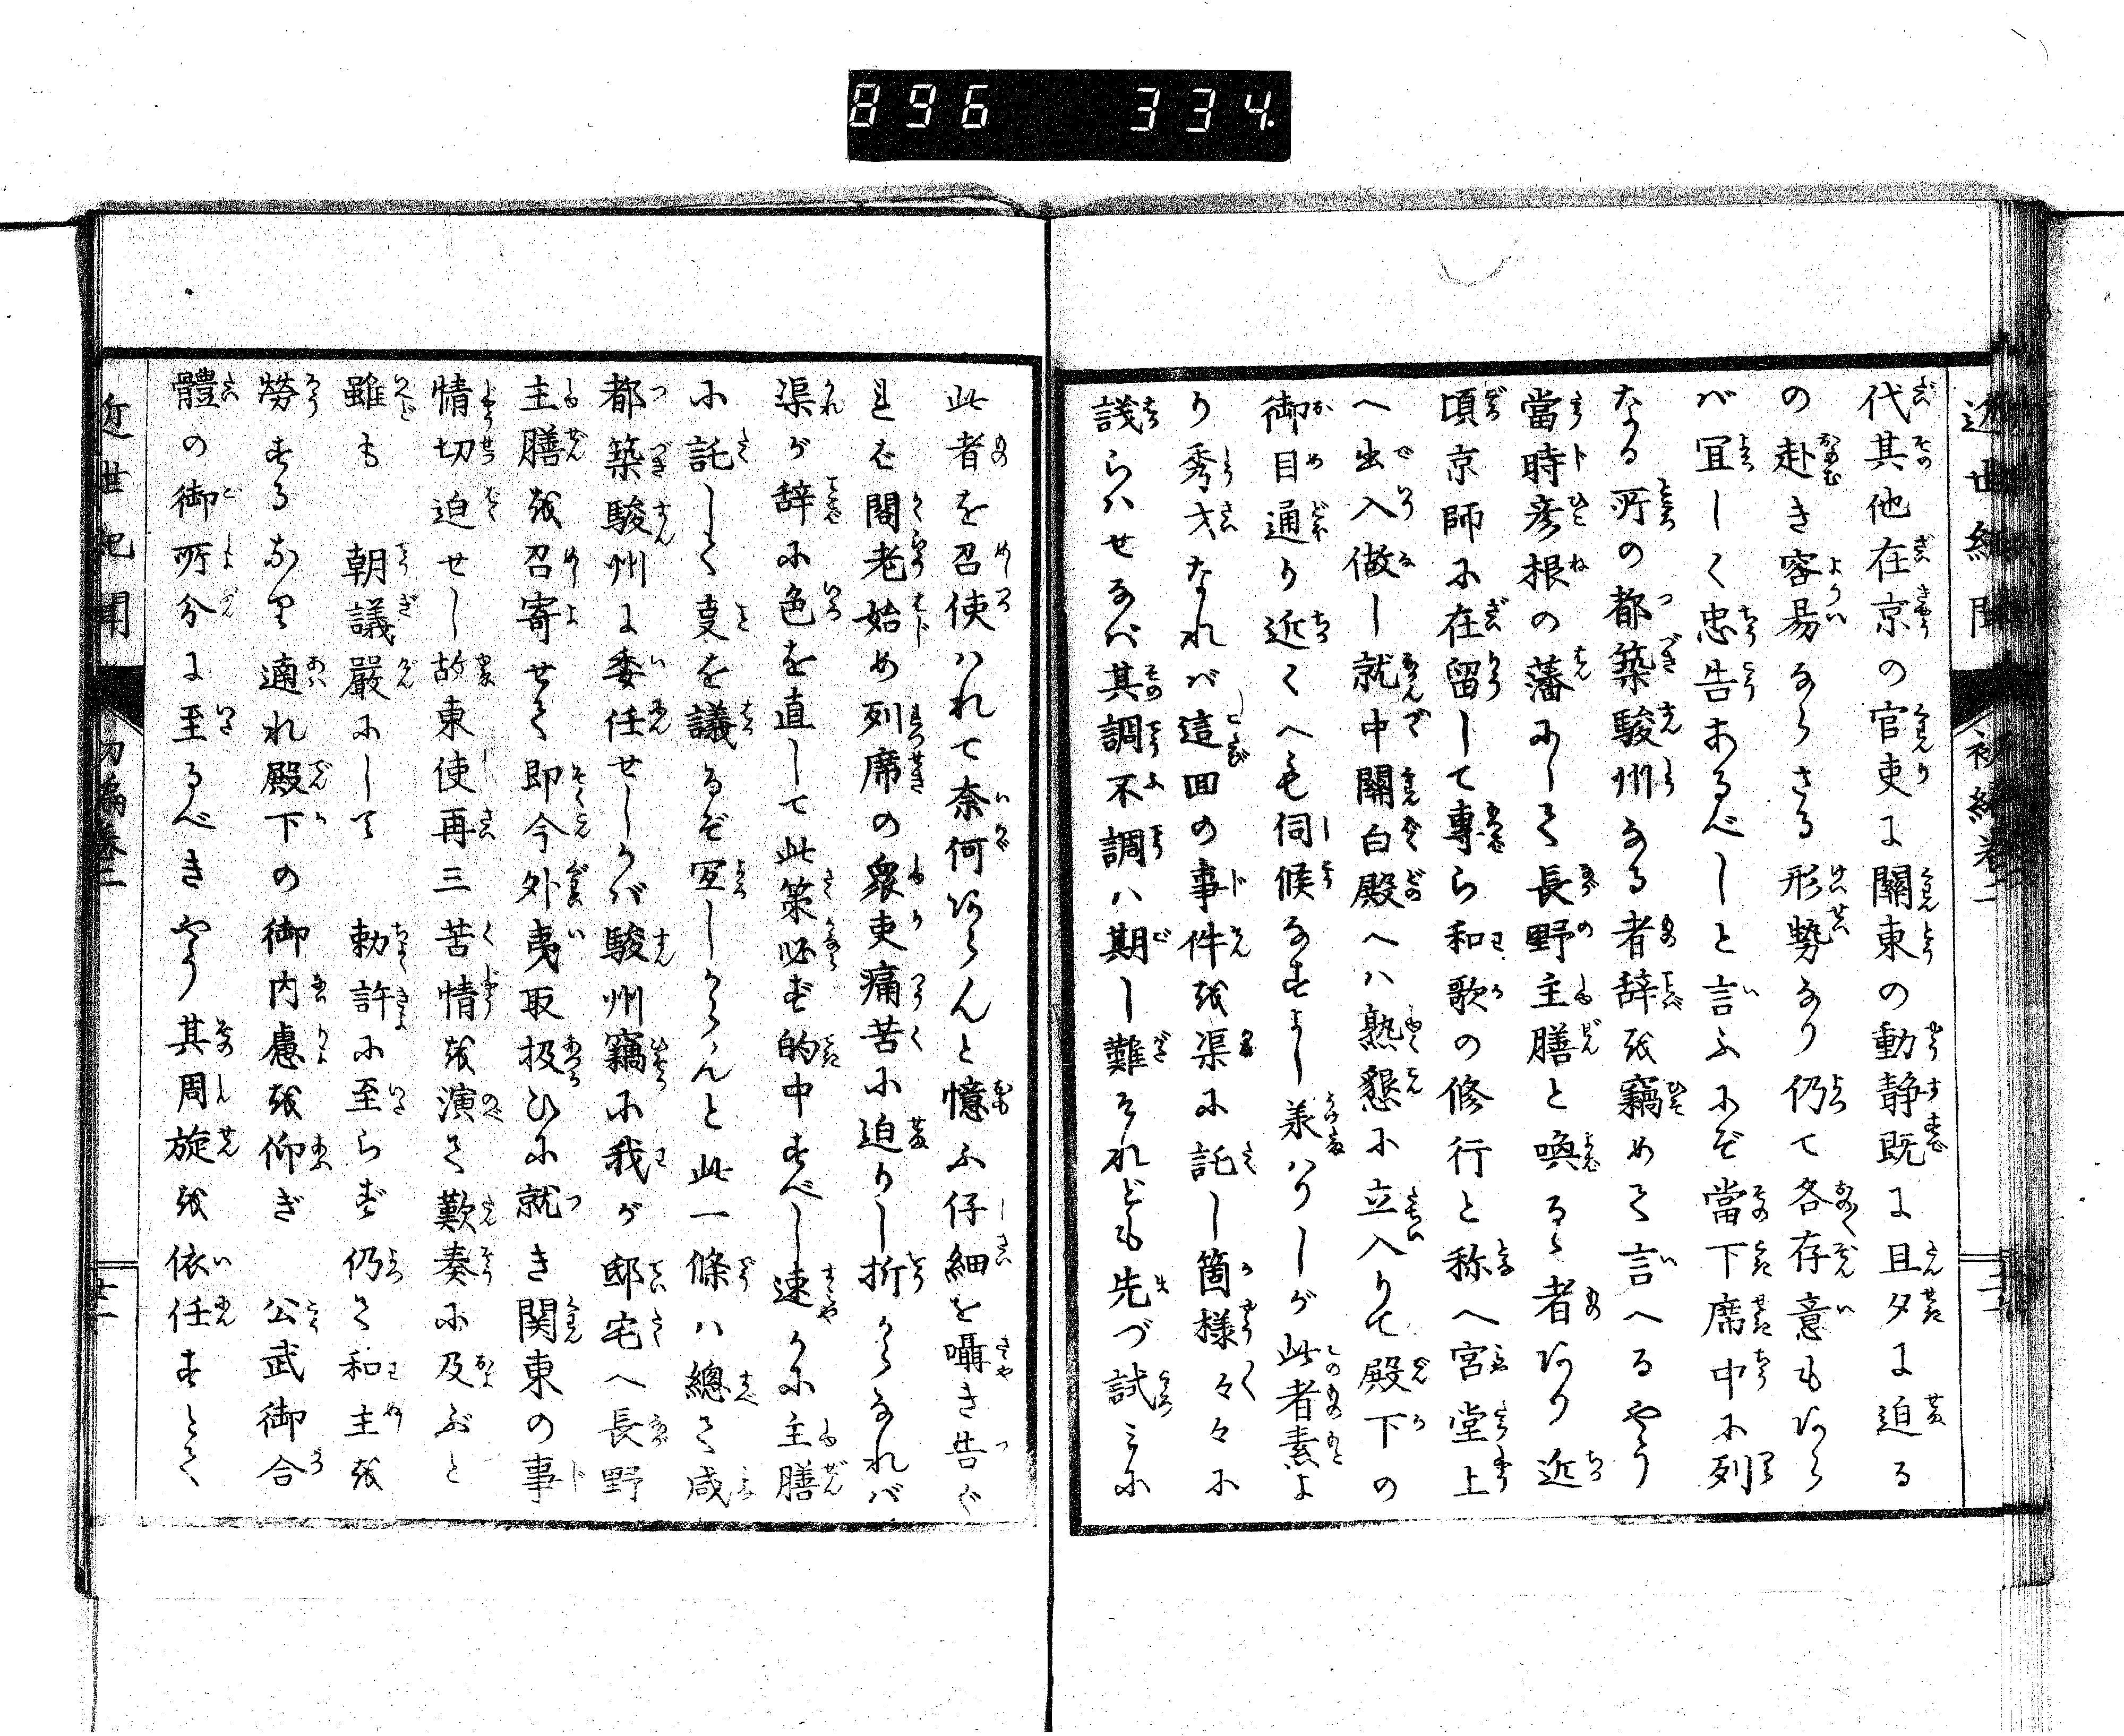 896 334
近世紀聞 初編巻二
代其他在京の官吏に關東の動静既に且夕に迫る
の赴き容易ならざる形勢なり仍て各存意もあら
バ宜しく忠告あるべしと言ふにぞ當下席中に列
なる所の都築駿州なる者辞を竊めて言へるやう
當時彦根の藩にして長野主膳と喚るゝ者あり近
頃京師に在留して專ら和歌の修行と称へ宮堂上
へ出入做し就中關白殿へハ熟懇に立入りて殿下の
御目通り近くへも伺候なすよし兼ハりしが此者素よ
り秀才なれバ這回の事件を渠に託し箇様々々に
議らハせなバ其調不調ハ期し難けれども先づ試ミに
此者を召使ハれて奈何あらんと憶ふ仔細を囁き告ぐ
れば閣老始め列席の衆吏痛苦に迫りし折からなれバ
渠が辞に色を直して此策必ず的中すべし速かに主膳
に託して叓を議るぞ宜しからんと此一條ハ總て咸
都築駿州に委任せしかバ駿州竊に我が邸宅へ長野
主膳を召寄せて即今外夷取扱ひに就き関東の事
情切迫せし故東使再三苦情を演て歎奏に及ぶと
雖も 朝議嚴にして 勅許に至らず仍て和主を
勞するなり遖れ殿下の御内慮を仰ぎ 公武御合
體の御所分に至るべきやう其周旋を依任すとて
近世紀聞 初編巻二